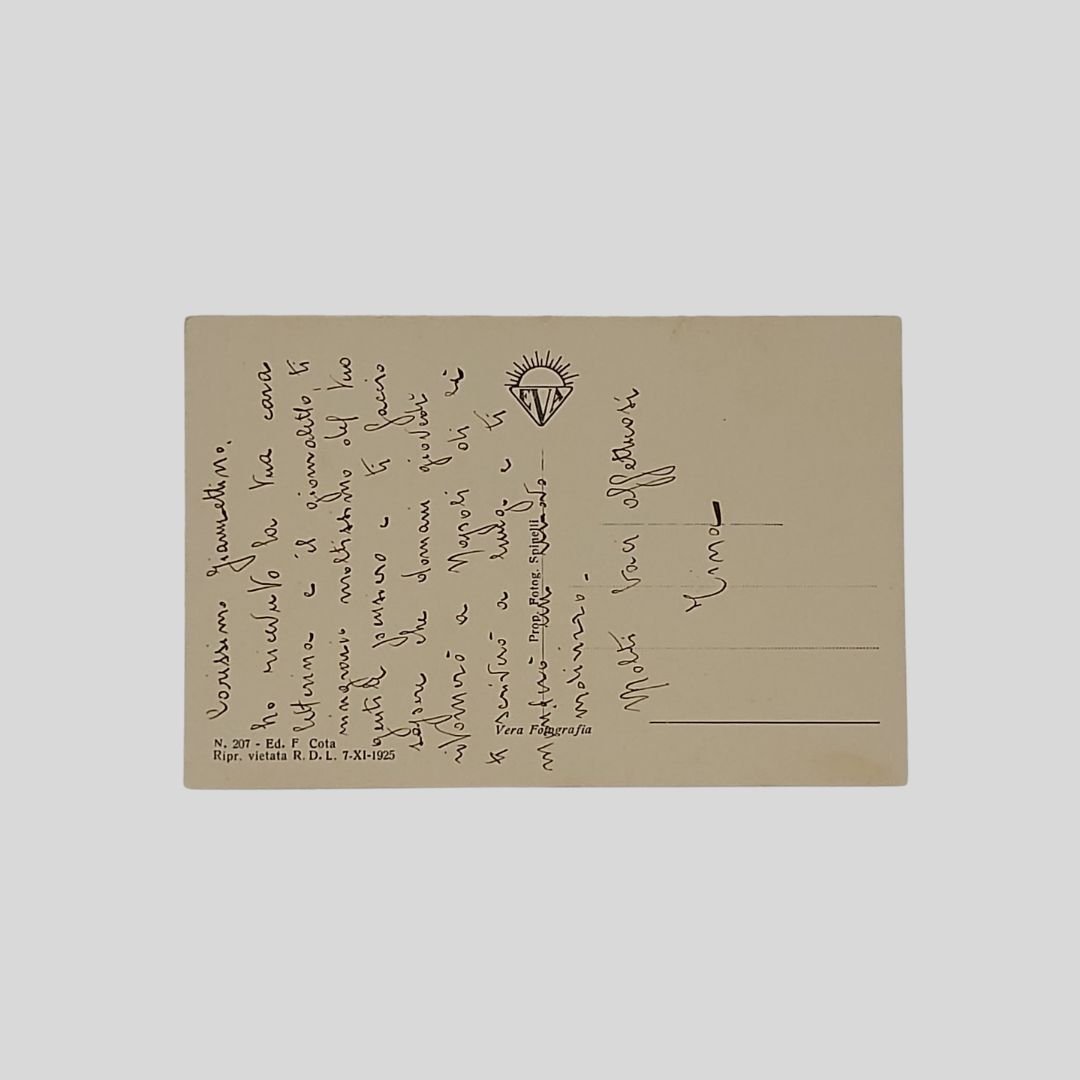 Carissimo Giannettino,
ho ricevuto la tua cara
letterina e il giornaletto, ti
ringrazio moltissimo del tuo
gentile pensiero e ti faccio
sapere che domani giovedì
ritornerò a Napoli di lì
ti scriverò a lungo e ti
indirizzo.
Molti baci affettuosi
Nina
EVA
Prop. Fotog. Spinelli
Vera Fotografia
N. 207 - Ed. F Cota
Ripr. vietata R. D. L. 7-XI-1925